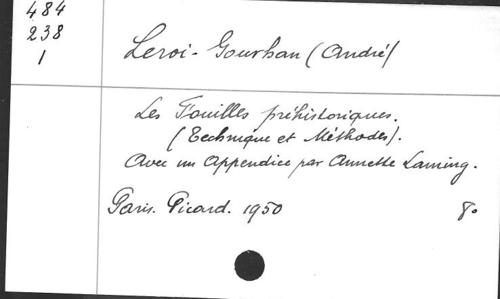 484
238
1
Leroi-Gourhan (André)
Les Fouilles préhistoriques.
(Technique et Méthodes).
Avec un Appendice par Annette Laming.
Paris. Picard. 1950 8o